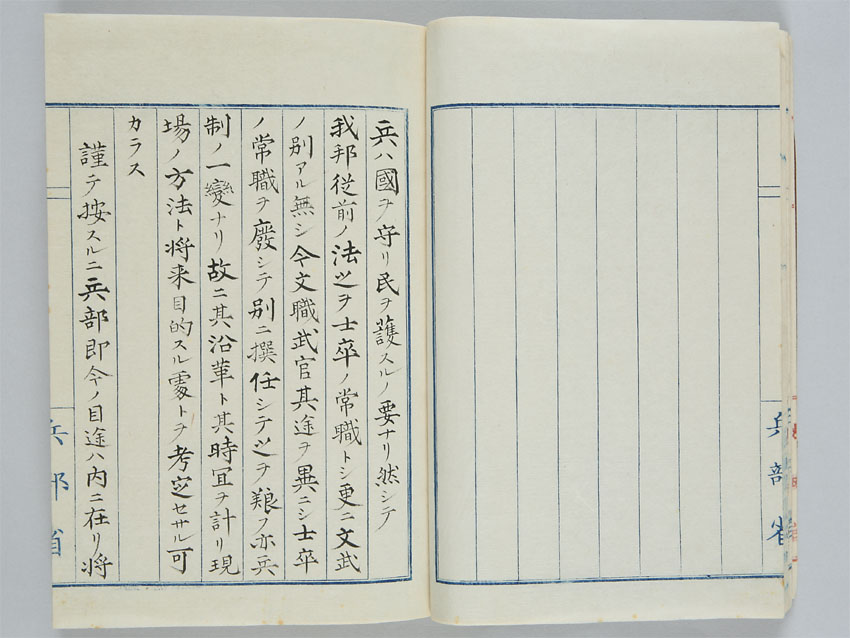 兵部省
兵ハ國ヲ守リ民ヲ護スルノ要ナリ然シテ
我邦従前ノ法之ヲ士卒ノ常職トシ更ニ文武
ノ別アル無シ今文職武官其途ヲ異ニシ士卒
ノ常職ヲ廢シテ別ニ撰任シテ之ヲ粮フ亦兵
制ノ一變ナリ故ニ其沿革ト其時宜ヲ計リ現
場ノ方法ト将来目的スル處トヲ考定セサル可
カラス
謹テ按スルニ兵部即今ノ目途ハ内ニ在リ将
兵部省